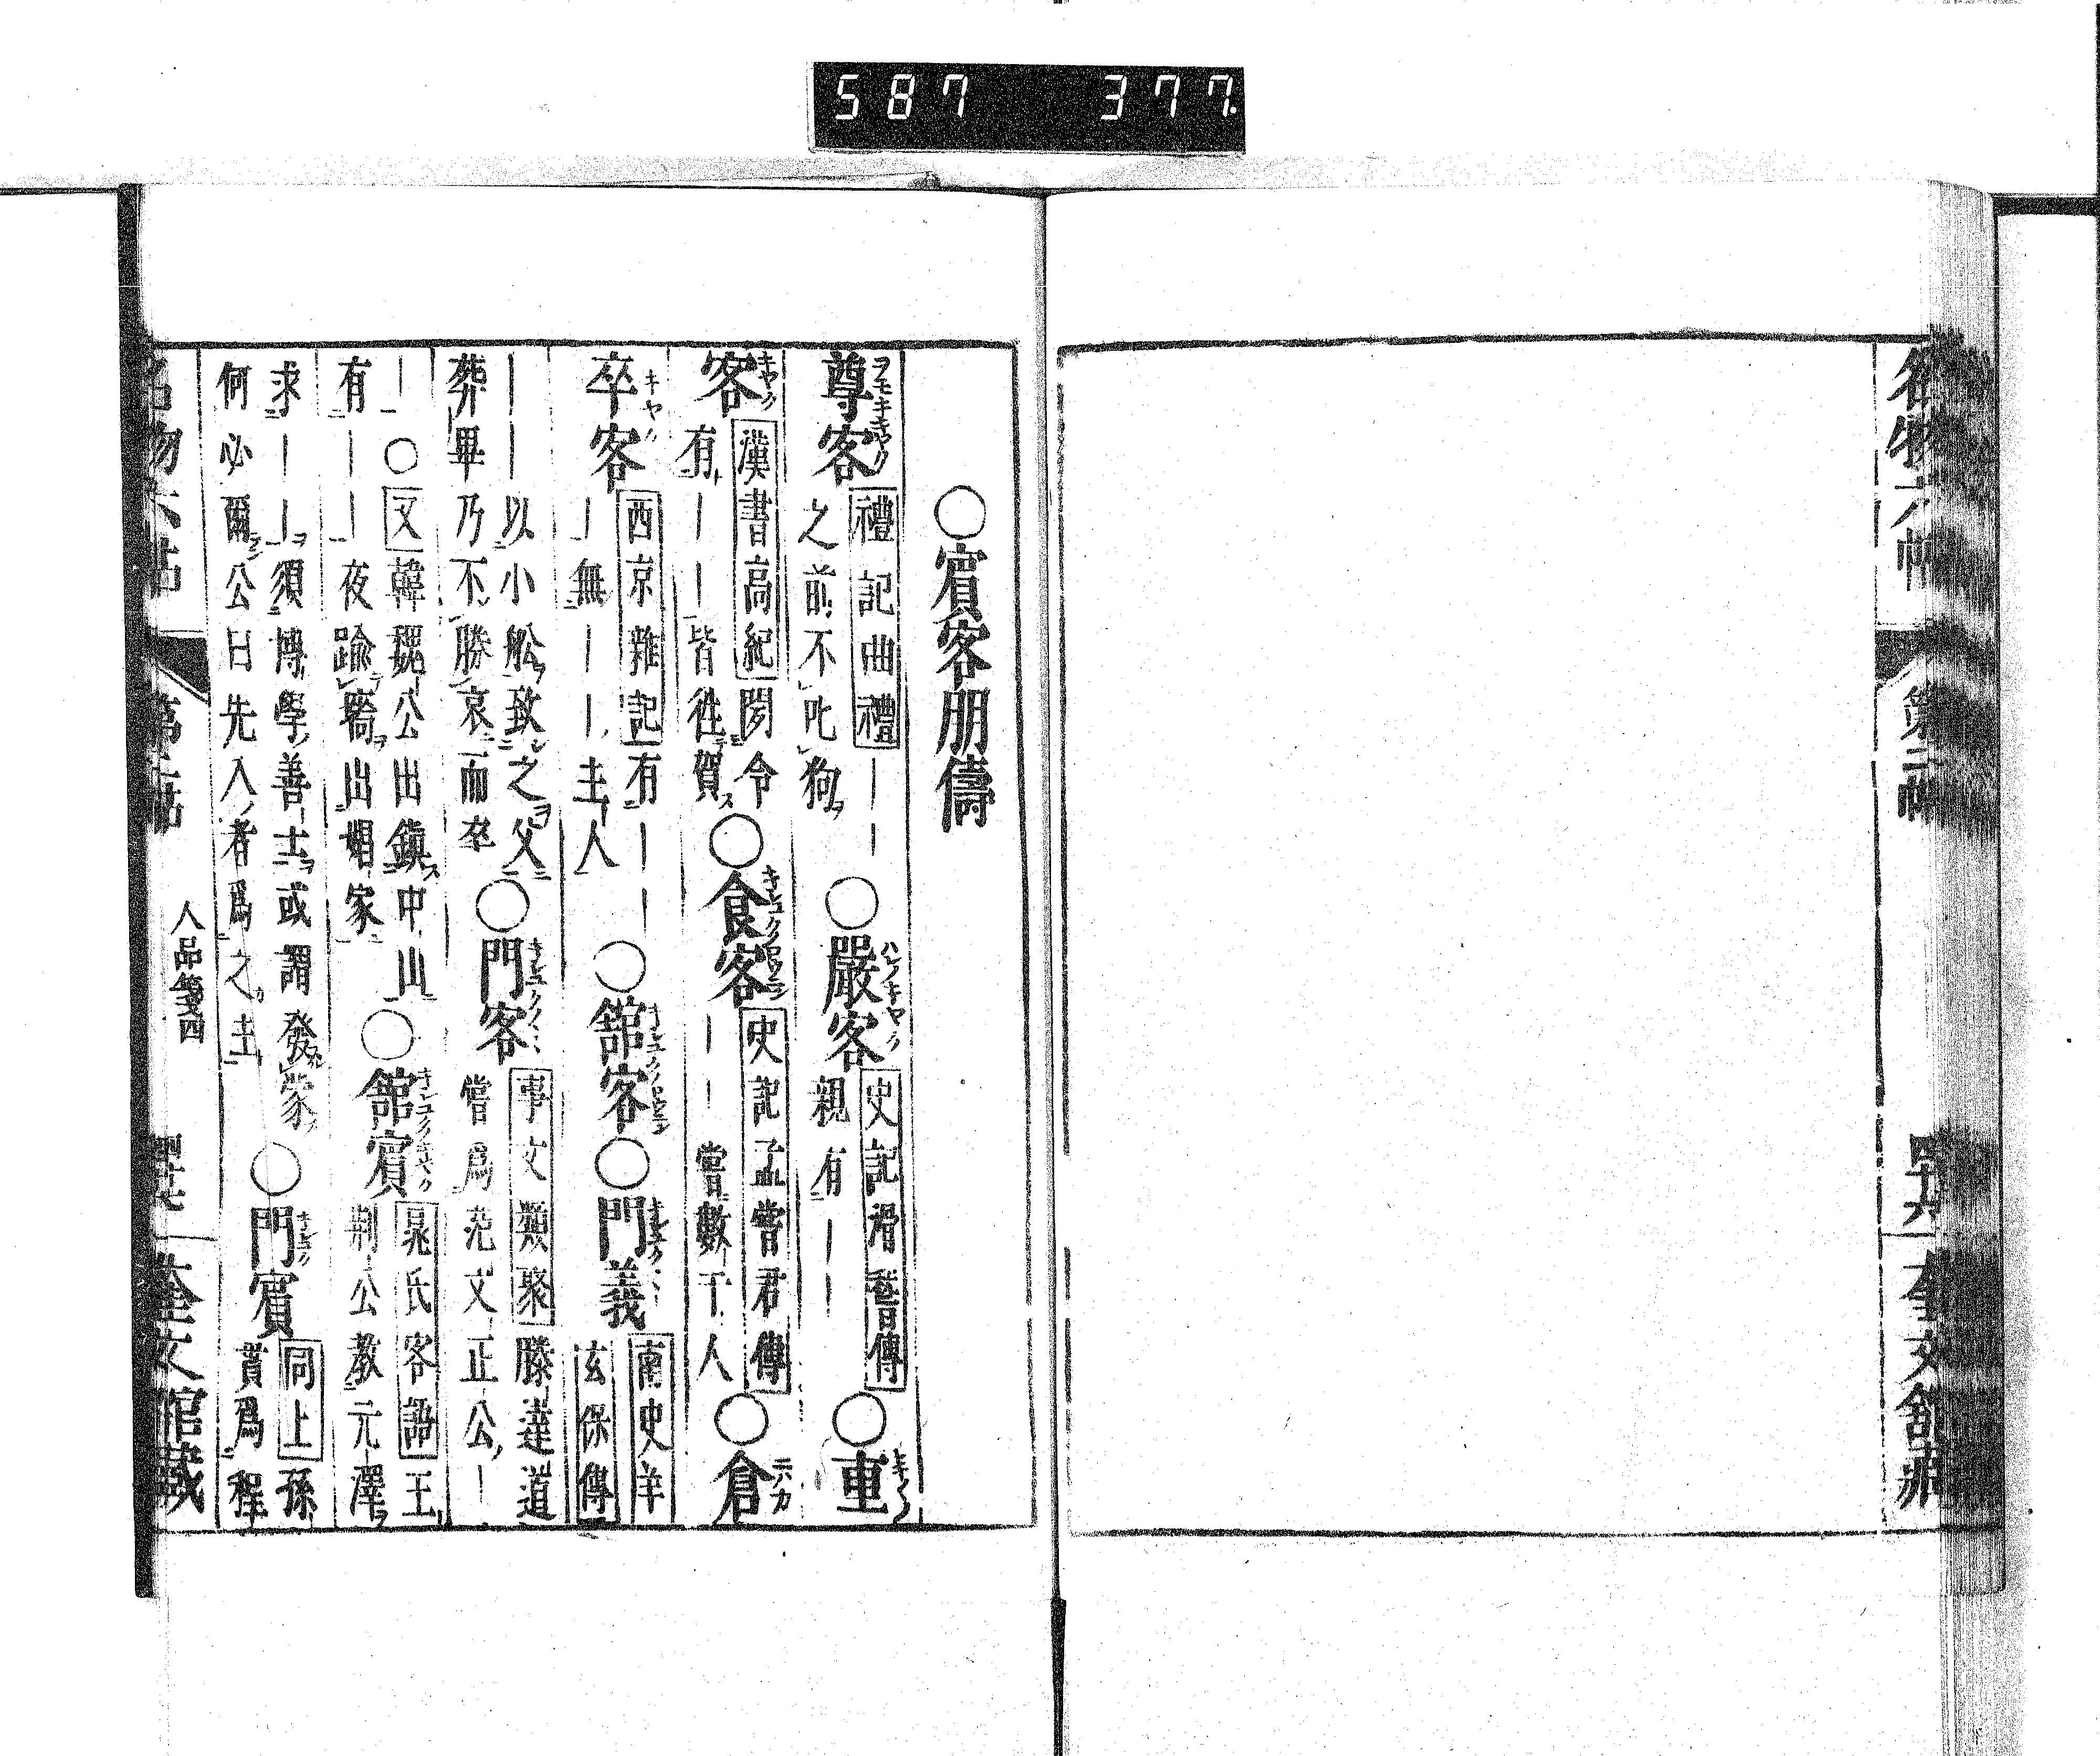 587 377.
名物六帖 第二帖 奎文館藏
○賓客朋儔
尊客 禮記曲禮――之前不叱狗 ○嚴客 史記滑稽傳親有―― ○重
客 漢書高紀聞令有――皆往賀 ○食客 史記孟嘗君傳――嘗數千人 ○倉
卒客 西京雜記有―――無―――主人 ○舘客 ○門義 南史羊玄保傳
――以小舩致之父葬畢乃不勝哀而卒 ○門客 事文類聚滕達道嘗爲范文正公―
―○又韓魏公出鎮中山有――夜踰牆出娼家 ○舘賓 晁氏客語王荆公教元澤
求――須博學善士或謂發蒙何必爾公曰先入者爲之主 ○門賓 同上孫賁爲程
名物六帖 第二帖 人品箋四 奎文館藏